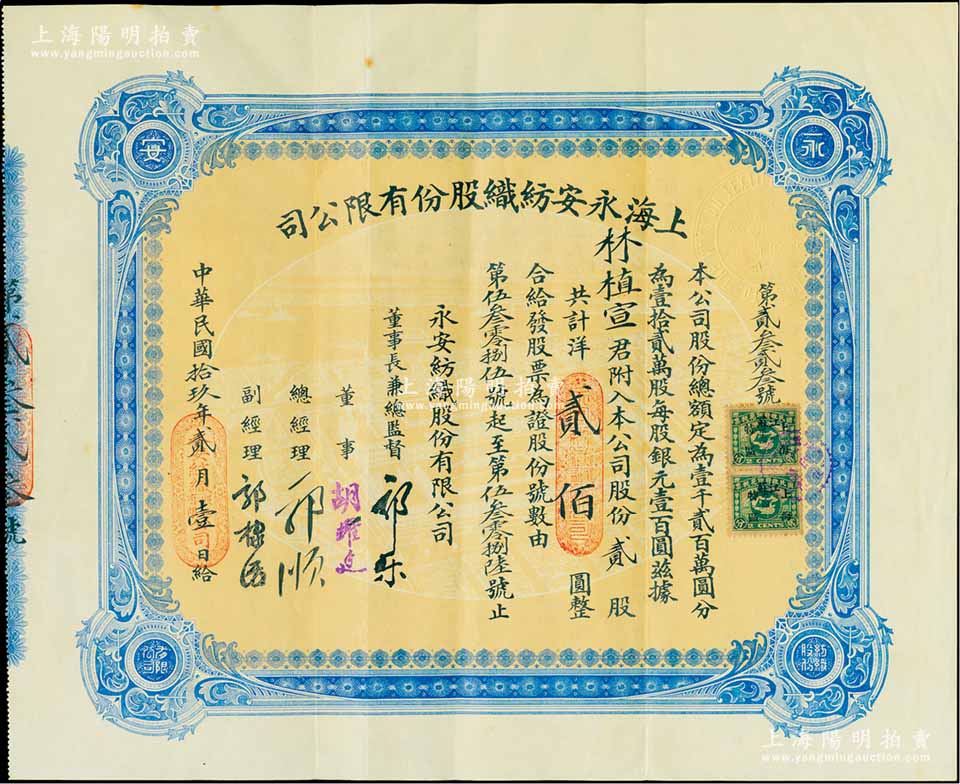 上海陽明拍賣
www.yangmingauction.com
永
安
紡織股份
有限公司
上海永安紡織股份有限公司
第貳叁貳叁號
本公司股份總額定為壹千貳百萬圓分
為壹拾貳萬股每股銀元壹百圓茲據
林植宣君附入本公司股份貳股
共計洋貳佰圓整
合給發股票為證股份號數由
第伍叁零捌伍號起至第伍叁零捌陸號止
永安紡織股份有限公司
董事長兼總監督 郭樂
董事 胡耀廷
總經理 郭順
副經理 郭棣活
中華民國拾玖年貳月壹日給
CENTS
CENTS
上海陽明拍賣
www.yangmingauction.com
上海陽明拍賣
www.yangmingauction.com